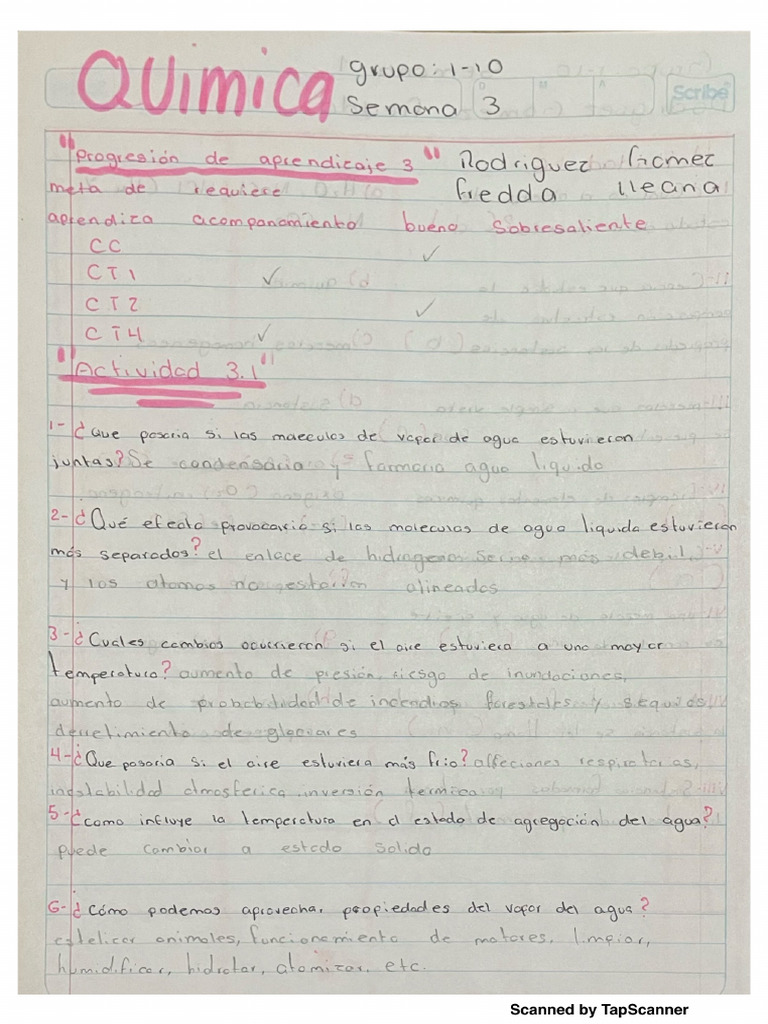 QUimica grupo: 1-10
Semana 3
Scribe
"Progresión de aprendizaje 3" Rodriguez Gomez
meta de requiere Fredda Ileana
aprendiza acompanamiento bueno Sobresaliente
CC ✓
CT1 ✓
CT2 ✓
CT4 ✓
"Actividad 3.1"
1-¿Que pasaria si las maeculas de vapor de agua estuvieron
juntas? Se condensaria y formaria agua liquida
2-¿Qué efecto provocaria si las moleculas de agua liquida estuvieran
más separados? el enlace de hidrogeno seria más debil
y los atomos no estarian alineados
3-¿Cuales cambios ocurrieron si el aire estuviera a una mayor
temperatura? aumento de presión, riesgo de inundaciones,
aumento de probabilidad de incendios forestales y sequias
derretimiento de glaciares
4-¿Que pasaria si el aire estuviera más frio? affeciones respiratorias,
inestabilidad atmosferica, inversión termica
5-¿como influye la temperatura en el estado de agregación del agua?
puede cambiar a estado solido
6-¿Cómo podemos aprovechar propiedades del vapor del agua?
animales, funcionamiento de motores, limpiar,
humidificar, hidratar, atomizar, etc.
Scanned by TapScanner